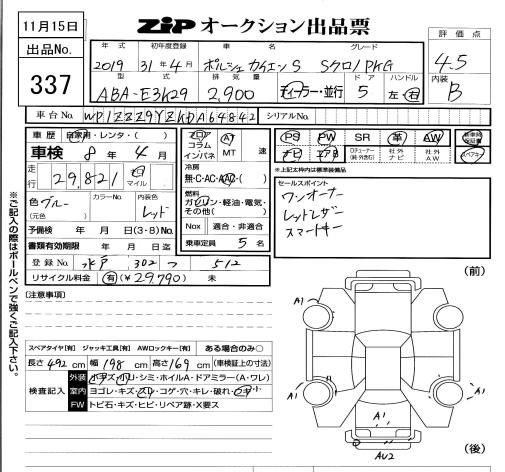 11月15日
ZiP オークション出品票
評価点
4.5
出品No.
337
年式 初年度登録 車名 グレード
2019 31年4月 ポルシェ カイエンS SクロノPKG
型式 排気量 ドア ハンドル
ABA-E3K29 2,900 ディーラー・並行 5 左・右
内装
B
車台No. WP1ZZZ9YZKDA64842 シリアルNo.
車歴 自家用・レンタ・( )
車検 8年4月
走行 29,821 キロ マイル
色 ブルー (元色) カラーNo. 内装色 レッド
予備検 年 月 日(3・8)No.
書類有効期限 年 月 日迄
登録No. 水戸 302 つ 512
リサイクル料金 有(¥29,790) 未
フロア コラム インパネ
AT MT 速
冷房
無・C・AC・AAC・( )
燃料
ガソリン・軽油・電気・その他( )
Nox 適合・非適合
乗車定員 5 名
PS PW SR 革 AW
ナビ エアB 社外ナビ 社外AW
※上記太枠内は標準装備品
セールスポイント
ワンオーナー
レッドレザー
スマートキー
[注意事項]
スペアタイヤ[有] ジャッキ工具[有] AWロックキー[有] ある場合のみ○
長さ 492 cm 幅 198 cm 高さ 169 cm (車検証上の寸法)
検査記入
外装 小キズ・小凹・シミ・ホイルA・ドアミラー(A・ワレ)
室内 ヨゴレ・キズ・スレ・コゲ・穴・キレ・破れ・
FW トビ石・キズ・ヒビ・リペア跡・X要ス
※ご記入の際はボールペンで強くご記入下さい。
(前)
A1
A1
A1
A1
A1
AU2
(後)